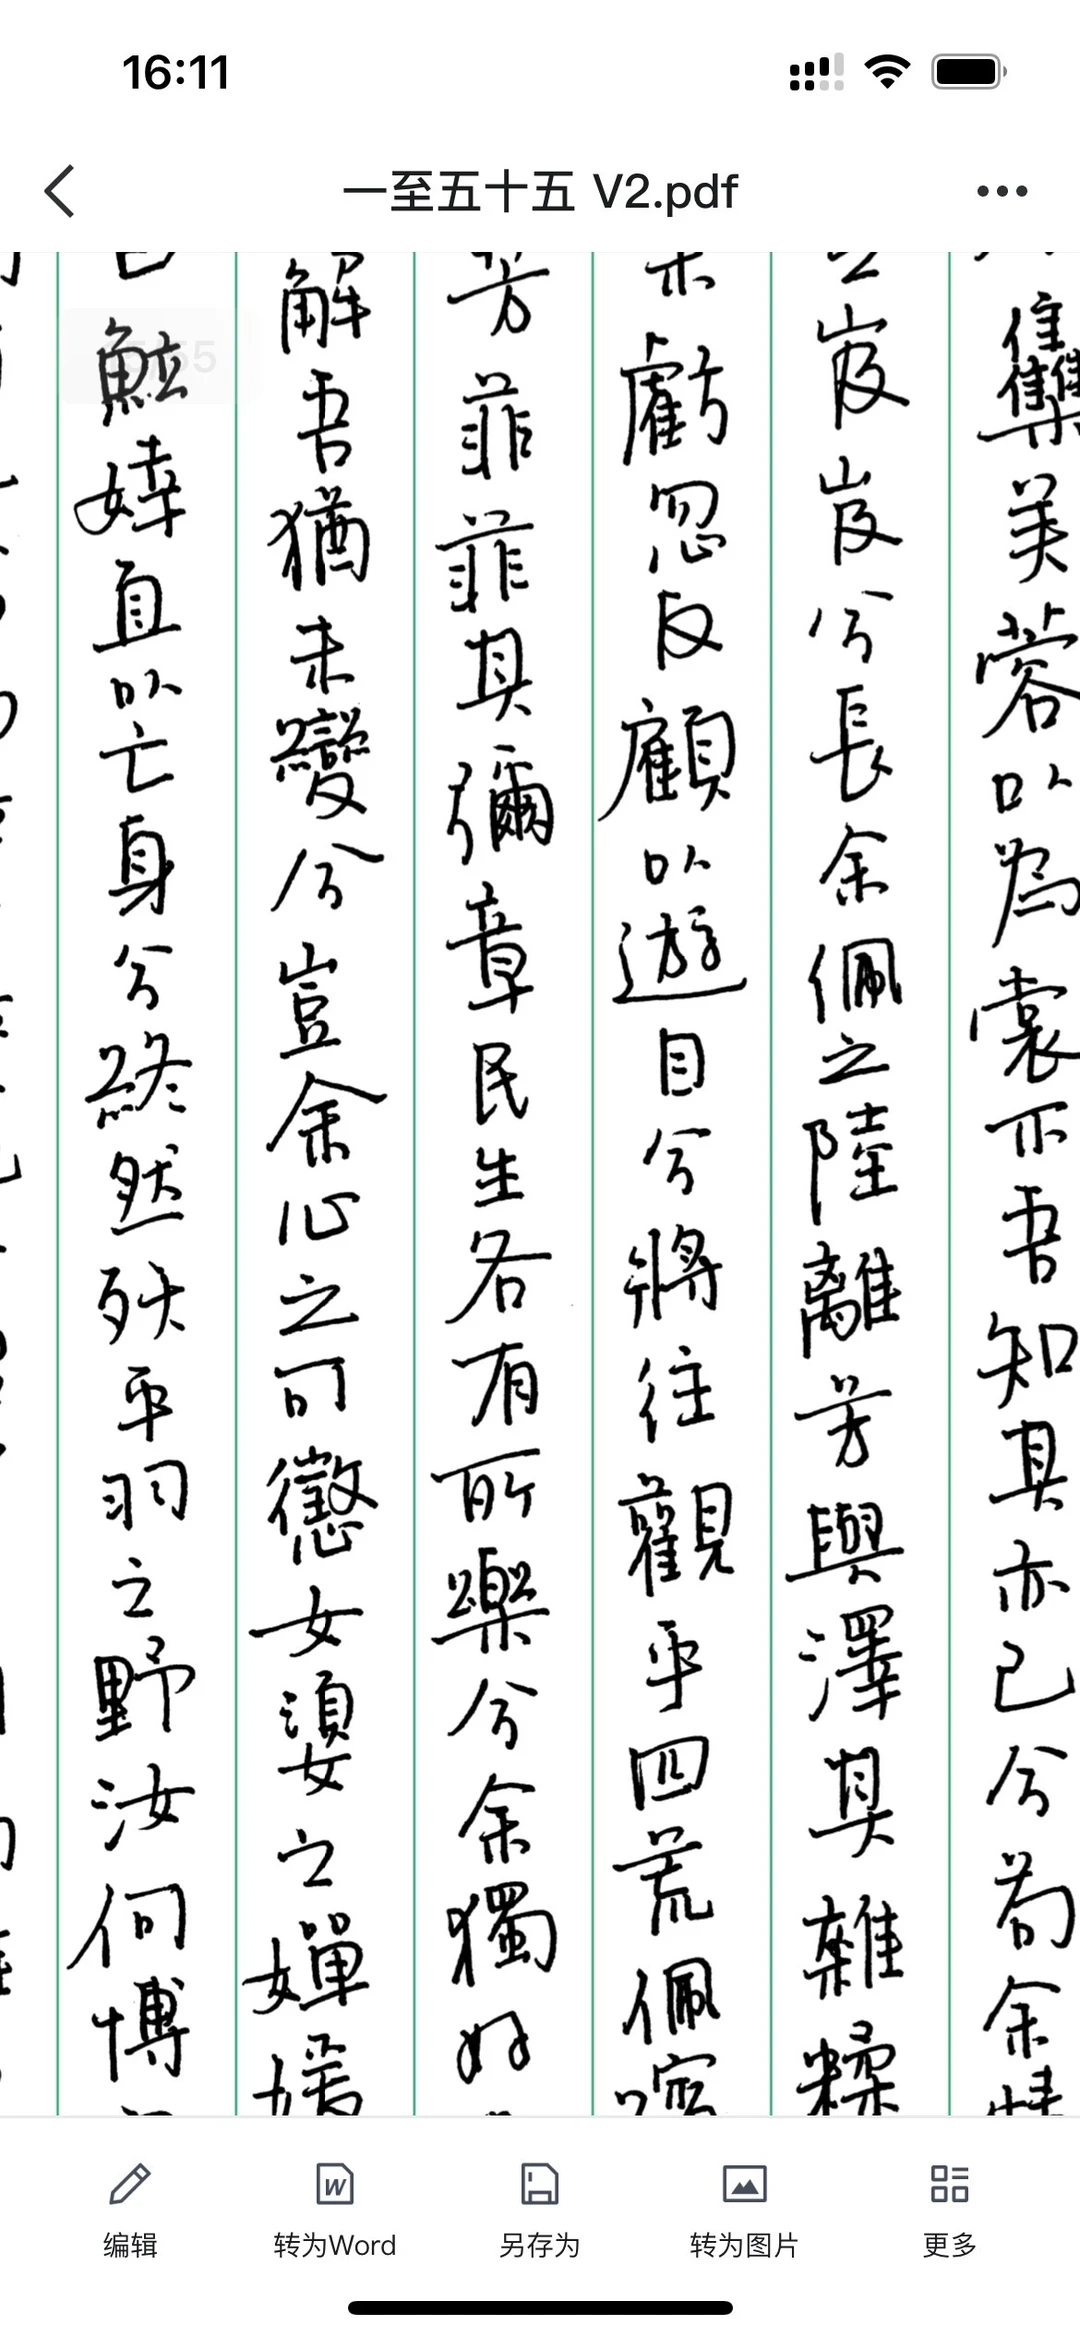 16:11
一至五十五 V2.pdf
集芙蓉以為裳不吾知其亦已兮苟余情
之岌岌兮長余佩之陸離芳與澤其雜糅
未虧忽反顧以遊目兮將往觀乎四荒佩繽
芳菲菲其彌章民生各有所樂兮余獨好
解吾猶未變兮豈余心之可懲女嬃之嬋媛
曰鯀婞直以亡身兮終然殀乎羽之野汝何博
编辑
转为Word
另存为
转为图片
更多